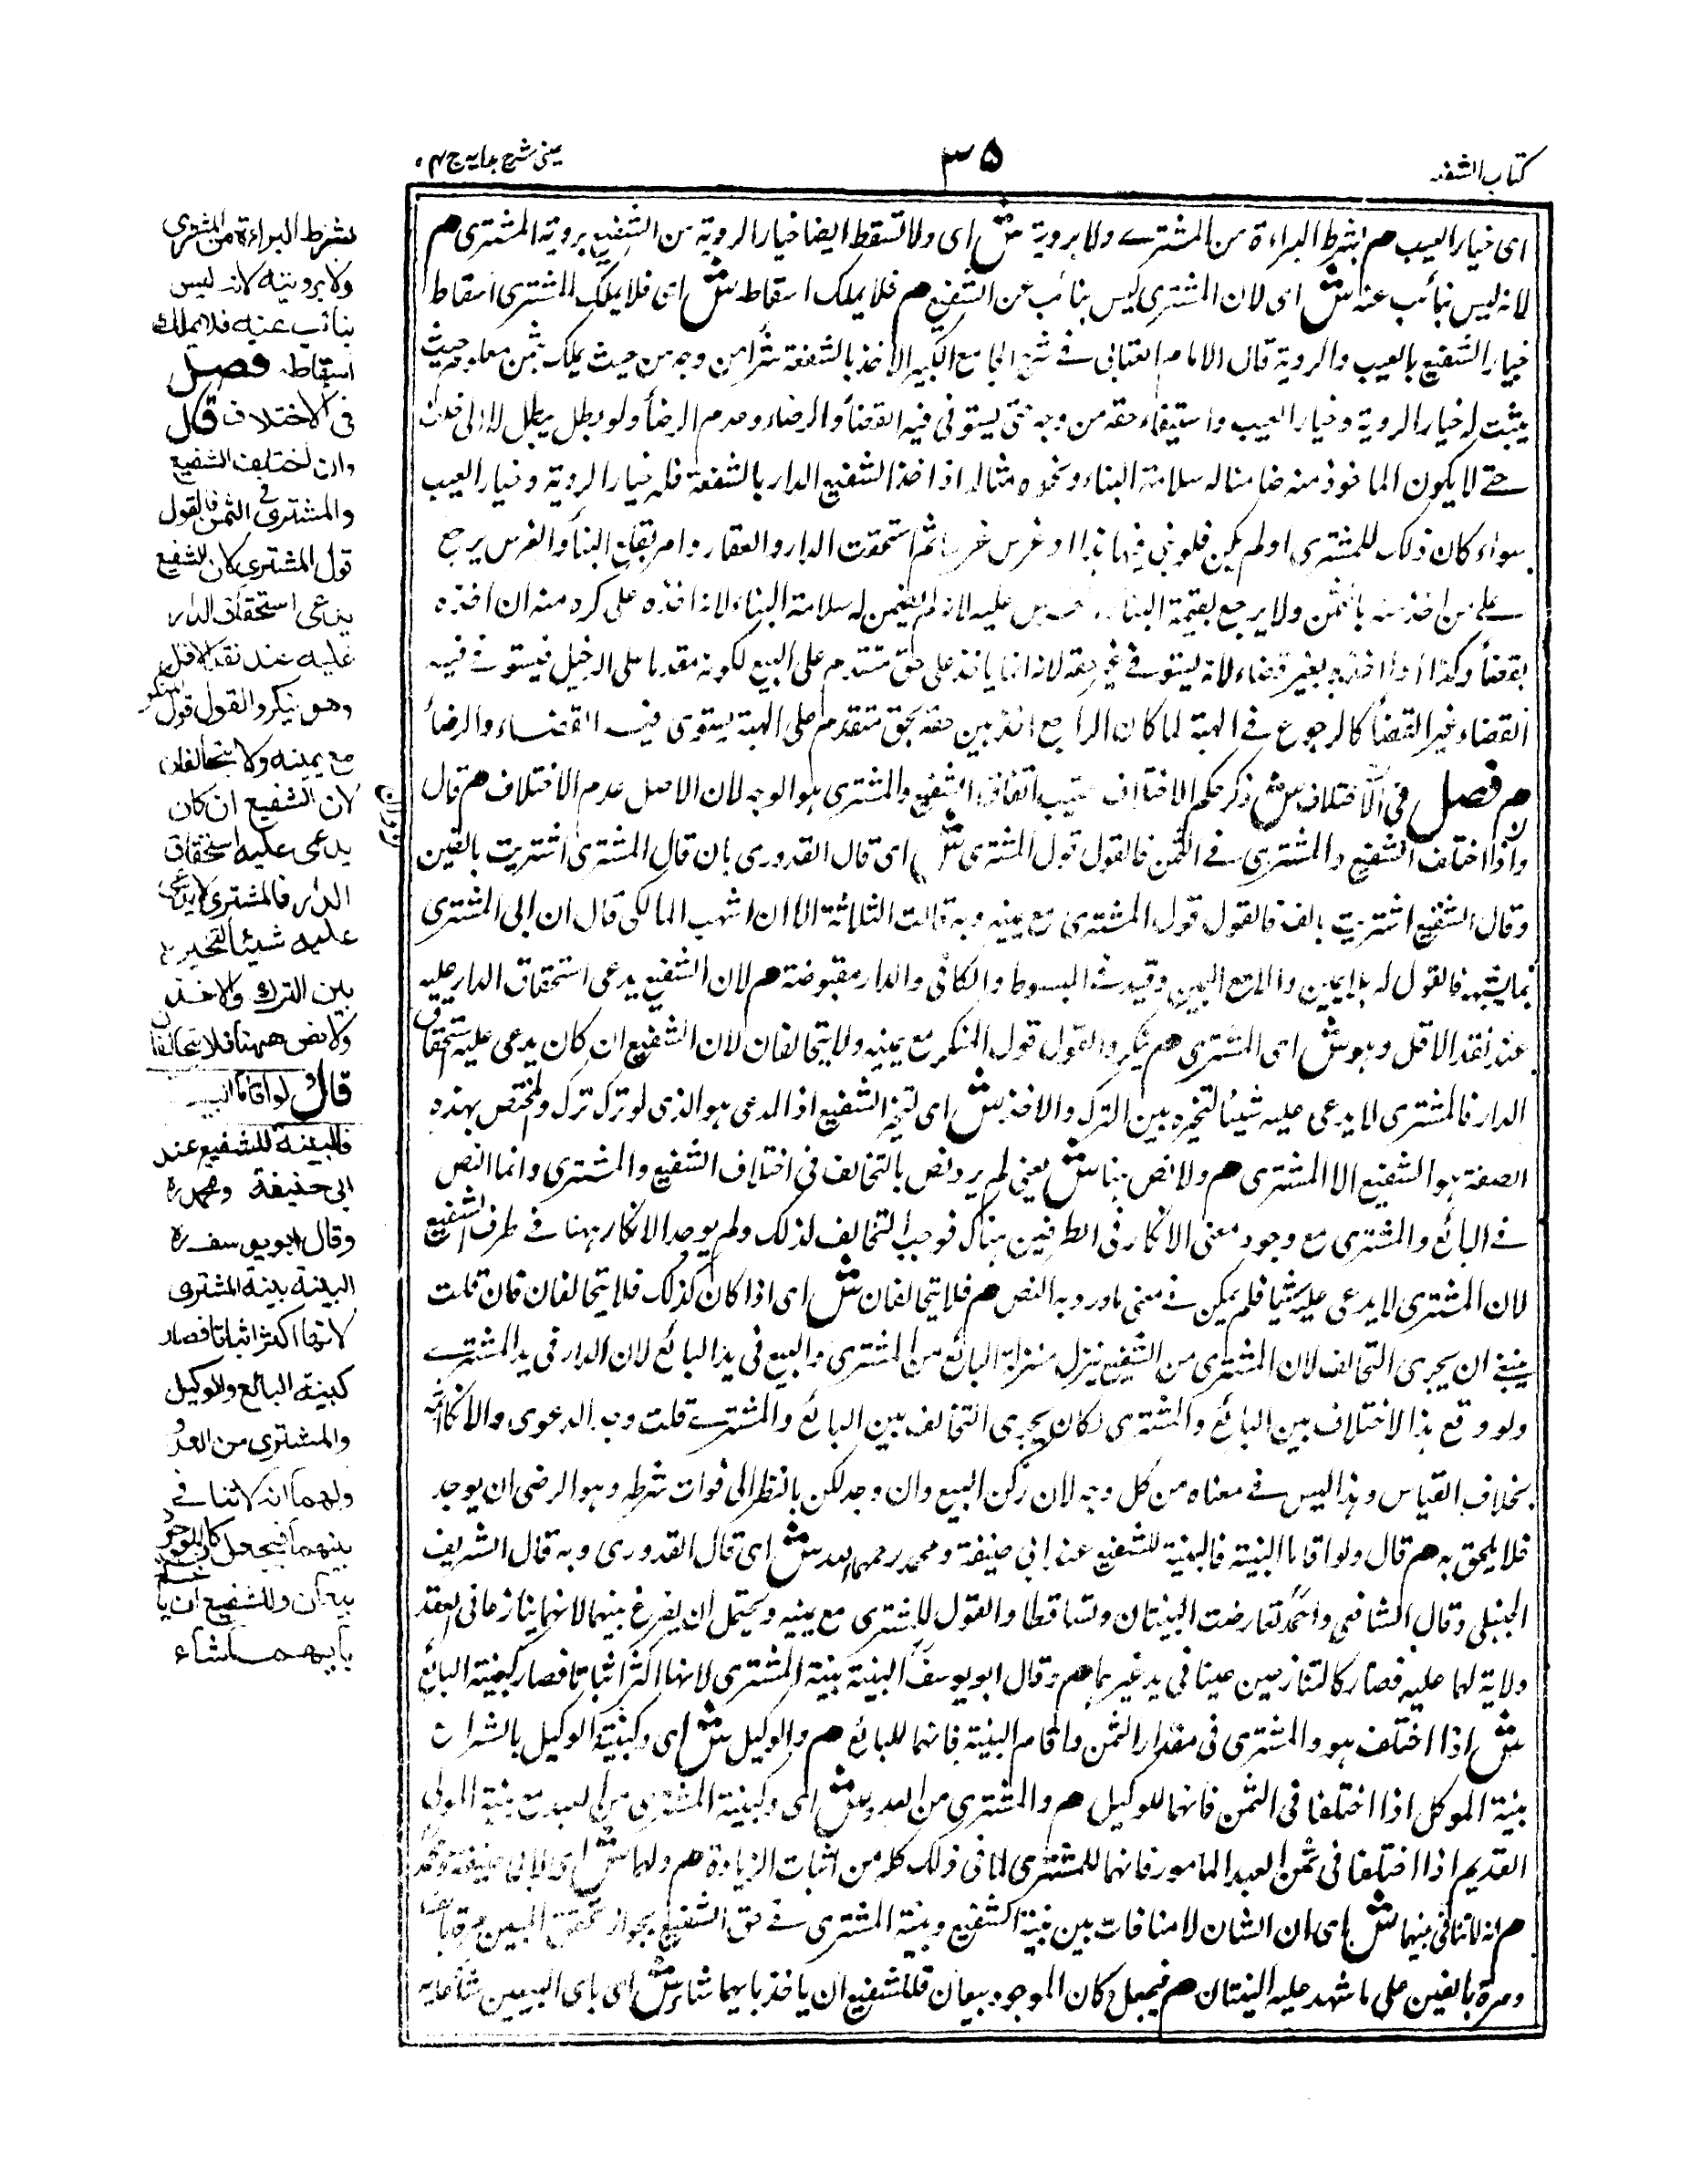 كتاب الشفعہ
۳۵
عینی شرح ہدایہ ج ۴
ای خیار العیب ھم بشرط البراءة من المشتری ولا بروية ش ای ولا تسقط ايضا خيار الروية من الشفيع بروية المشتری ھم
لانه ليس بنائب عنه ش ای لان المشتری ليس بنائب عن الشفيع ھم فلا يملك اسقاطه ش ای فلا يملك المشتری اسقاط
خيار الشفيع بالعيب والروية قال الامام العتابی فی شرح الجامع الكبير الاخذ بالشفعة شرا من وجه من حيث يملك بثمن معلوم حيث
يثبت له خيار الروية وخيار العيب واستيفاء حقه من وجه حتى يستوفى فيه القضاء والرضاء وعدم الرضا ولو بطل يبطل لا الى
حتى لا يكون الماخوذ منه ضامنا له سلامة البناء ونحوه مثاله اذا اخذ الشفيع الدار بالشفعة فله خيار الروية وخيار العيب
سواء كان ذلك للمشتری او لم يكن فلو بنى فيها بناء او غرس غرسا ثم استحقت الدار والعقار وامر بقلع البناء والغرس يرجع
على من اخذ منه بالثمن ولا يرجع بقيمة البناء عليه لانه لم يضمن له سلامة البناء لانه اخذه على كره منه ان اخذه
بقضاء وكذا اذا اخذه بغير قضاء لانه يستوفى غير حقه لانه انما ياخذ على حق متقدم على البيع لكونه مقدما على الدخيل فيستوى فيه
القضاء وغير القضاء كالرجوع فی الهبة لما كان الراجع اخذ بين حقه بحق متقدم على الهبة يستوى فيه القضاء والرضاء
ھم فصل فی الاختلاف ش ذكر حكم الاختلاف عقيب اتفاق الشفيع والمشتری هو الوجه لان الاصل عدم الاختلاف ھم قال
واذا اختلف الشفيع والمشتری فی الثمن فالقول قول المشتری ش ای قال القدوری بان قال المشتری اشتريت بالفين
وقال الشفيع اشتريت بالف فالقول قول المشتری مع يمينه وبه قالت الثلاثة الا ان اشهب المالكی قال ان اتى المشتری
بما يشبه فالقول له بلا يمين والا مع اليمين وقيد فی المبسوط والكافی والدار مقبوضة ھم لان الشفيع يدعی استحقاق الدار عليه
عند نقد الاقل وهو ش ای المشتری ھم ينكر والقول قول المنكر مع يمينه ولا يتحالفان لان الشفيع ان كان يدعی عليه استحقاق
الدار فالمشتری لا يدعی عليه شيئا لتخيره بين الترك والاخذ ش ای لتخير الشفيع اذ المدعی هو الذی لو ترك ترك والمختص بهذه
الصفة هو الشفيع لا المشتری ھم ولا نص هنا ش يعنی لم يرد نص بالتحالف فی اختلاف الشفيع والمشتری وانما النص
فی البائع والمشتری مع وجود معنى الانكار فی الطرفين هناك فوجب التحالف لذلك ولم يوجد الانكار ههنا فی طرف الشفيع
لان المشتری لا يدعی عليه شيئا فلم يكن فی معنى ما ورد به النص ھم فلا يتحالفان ش ای اذا كان كذلك فلا يتحالفان فان قلت
ينبغی ان يجری التحالف لان المشتری من الشفيع ينزل منزلة البائع من المشتری والبيع فی يد البائع لان الدار فی يد المشتری
ولو وقع هذا الاختلاف بين البائع والمشتری لكان يجری التحالف بين البائع والمشتری قلت وجد الدعوى والانكار ثمه
بخلاف القياس وهذا ليس فی معناه من كل وجه لان ركن البيع وان وجد لكن بالنظر الى فوات شرطه وهو الرضى ان يوجد
فلا يلحق به ھم قال ولو اقاما البينة فالبينة للشفيع عند ابی حنيفة ومحمد رحمهما الله ش ای قال القدوری وبه قال الشريف
الحنبلی وقال الشافعی واحمد تعارضت البينتان وتساقطا والقول للمشتری مع يمينه ويحتمل ان يفرغ بينهما لانهما ينازعا فی العقد
ولاية لهما عليه فصار كالمتنازعين عينا فی يد غيرهما ھم وقال ابو يوسف البينة بينة المشتری لانها اكثر اثباتا فصار كبينة البائع
ش اذا اختلف هو والمشتری فی مقدار الثمن واقاما البينة فانها للبائع ھم والوكيل ش ای وكبينة الوكيل بالشراء
بينة الموكل اذا اختلفا فی الثمن فانها للوكيل ھم والمشتری من العدو ش ای وكبينة المشتری من العدو مع بينة المولى
القديم اذا اختلفا فی ثمن العبد المامور فانها للمشتری لما فی ذلك كله من اثبات الزيادة ھم ولهما ش ای لابی حنيفة ومحمد
ھم انه لا تنافی بينهما ش ای ان الشان لا منافات بين بينة الشفيع وبينة المشتری فی حق الشفيع بجواز تحقق البيعين مرة بالف
ومرة بالفين على ما شهد عليه البينتان ھم فيجعل كان الموجود بيعان فللشفيع ان ياخذ بايهما شاء ش ای بای البيعين شاء
بشرط البراءة من المشتری
ولا برويته لانه ليس
بنائب عنه فلا يملك
اسقاطه فصل
فی الاختلاف قال
وان اختلف الشفيع
والمشتری فی الثمن فالقول
قول المشتری لان الشفيع
يدعی استحقاق الدار
عليه عند نقد الاقل
وهو ينكر والقول قول المنكر
مع يمينه ولا يتحالفان
لان الشفيع ان كان
يدعى عليه استحقاق
الدار فالمشتری لا يدعی
عليه شيئا لتخيره
بين الترك والاخذ
ولا نص ههنا فلا يتحالفان
قال ولو اقاما البينة
فالبينة للشفيع عند
ابی حنيفة ومحمد رہ
وقال ابو يوسف رہ
البينة بينة المشتری
لانها اكثر اثباتا فصار
كبينة البائع والوكيل
والمشتری من العدو
ولهما انه لا تنافی
بينهما فيجعل كان الموجود
بيعان وللشفيع ان ياخذ
بايهما شاء